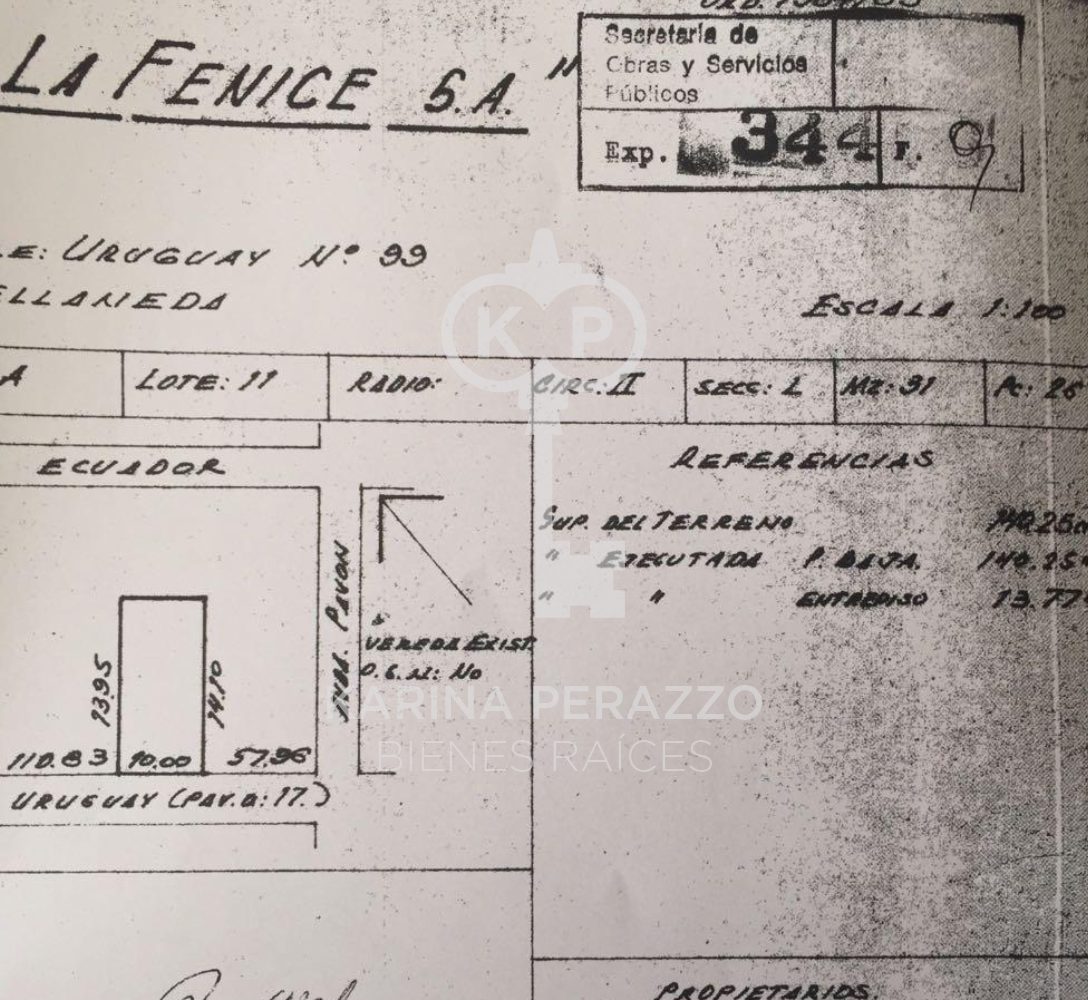 Secretaría de
Obras y Servicios
Públicos
LA FENICE S.A."
Exp. 344 F.
E: URUGUAY Nº 99
ELLANEDA
ESCALA 1:100
A LOTE: 11 RADIO: CIRC: II SECC: L MZ: 31 Pc: 26
ECUADOR
REFERENCIAS
SUP. DEL TERRENO 140.25
" EJECUTADA P. BAJA. 140.25
" " ENTREPISO 13.77
PAVON
VEREDA EXIST.
O.G.N: No
13.95
14.10
110.83 10.00 57.96
URUGUAY (PAV.a: 17.)
KP
KARINA PERAZZO
BIENES RAÍCES
PROPIETARIOS